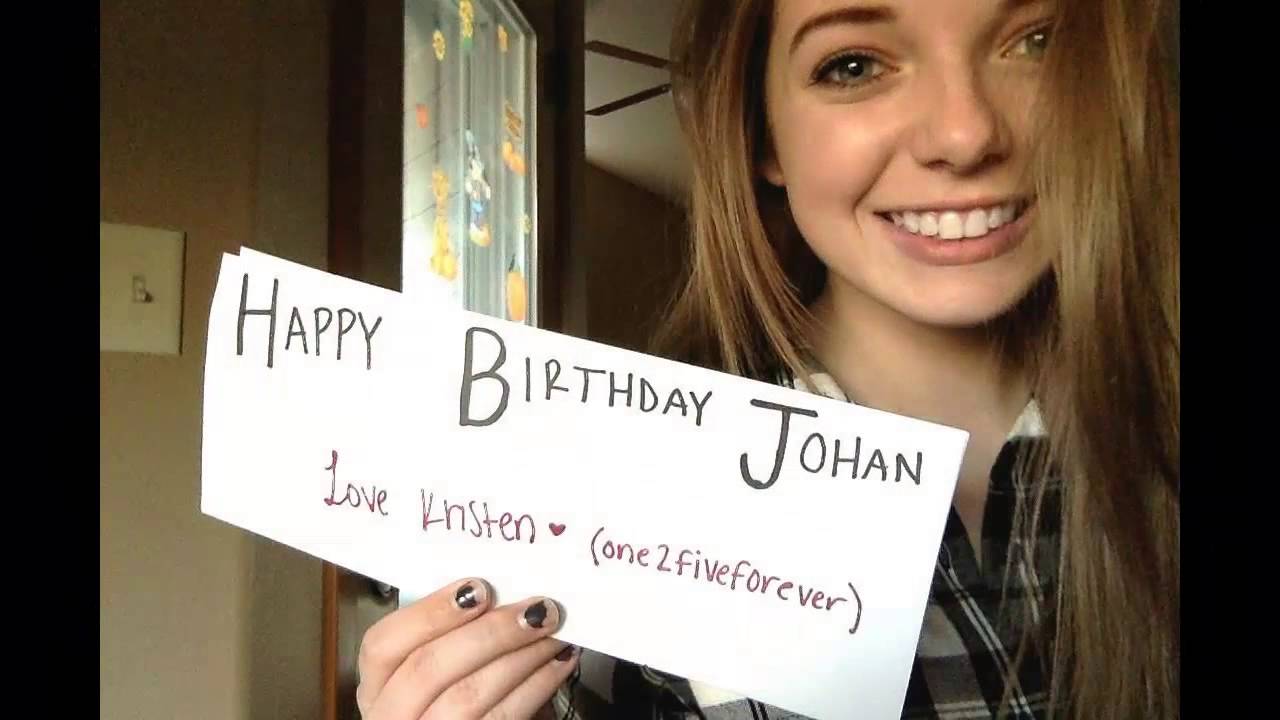 HAPPY BIRTHDAY JOHAN
Love Kristen ♥ (one2fiveforever)